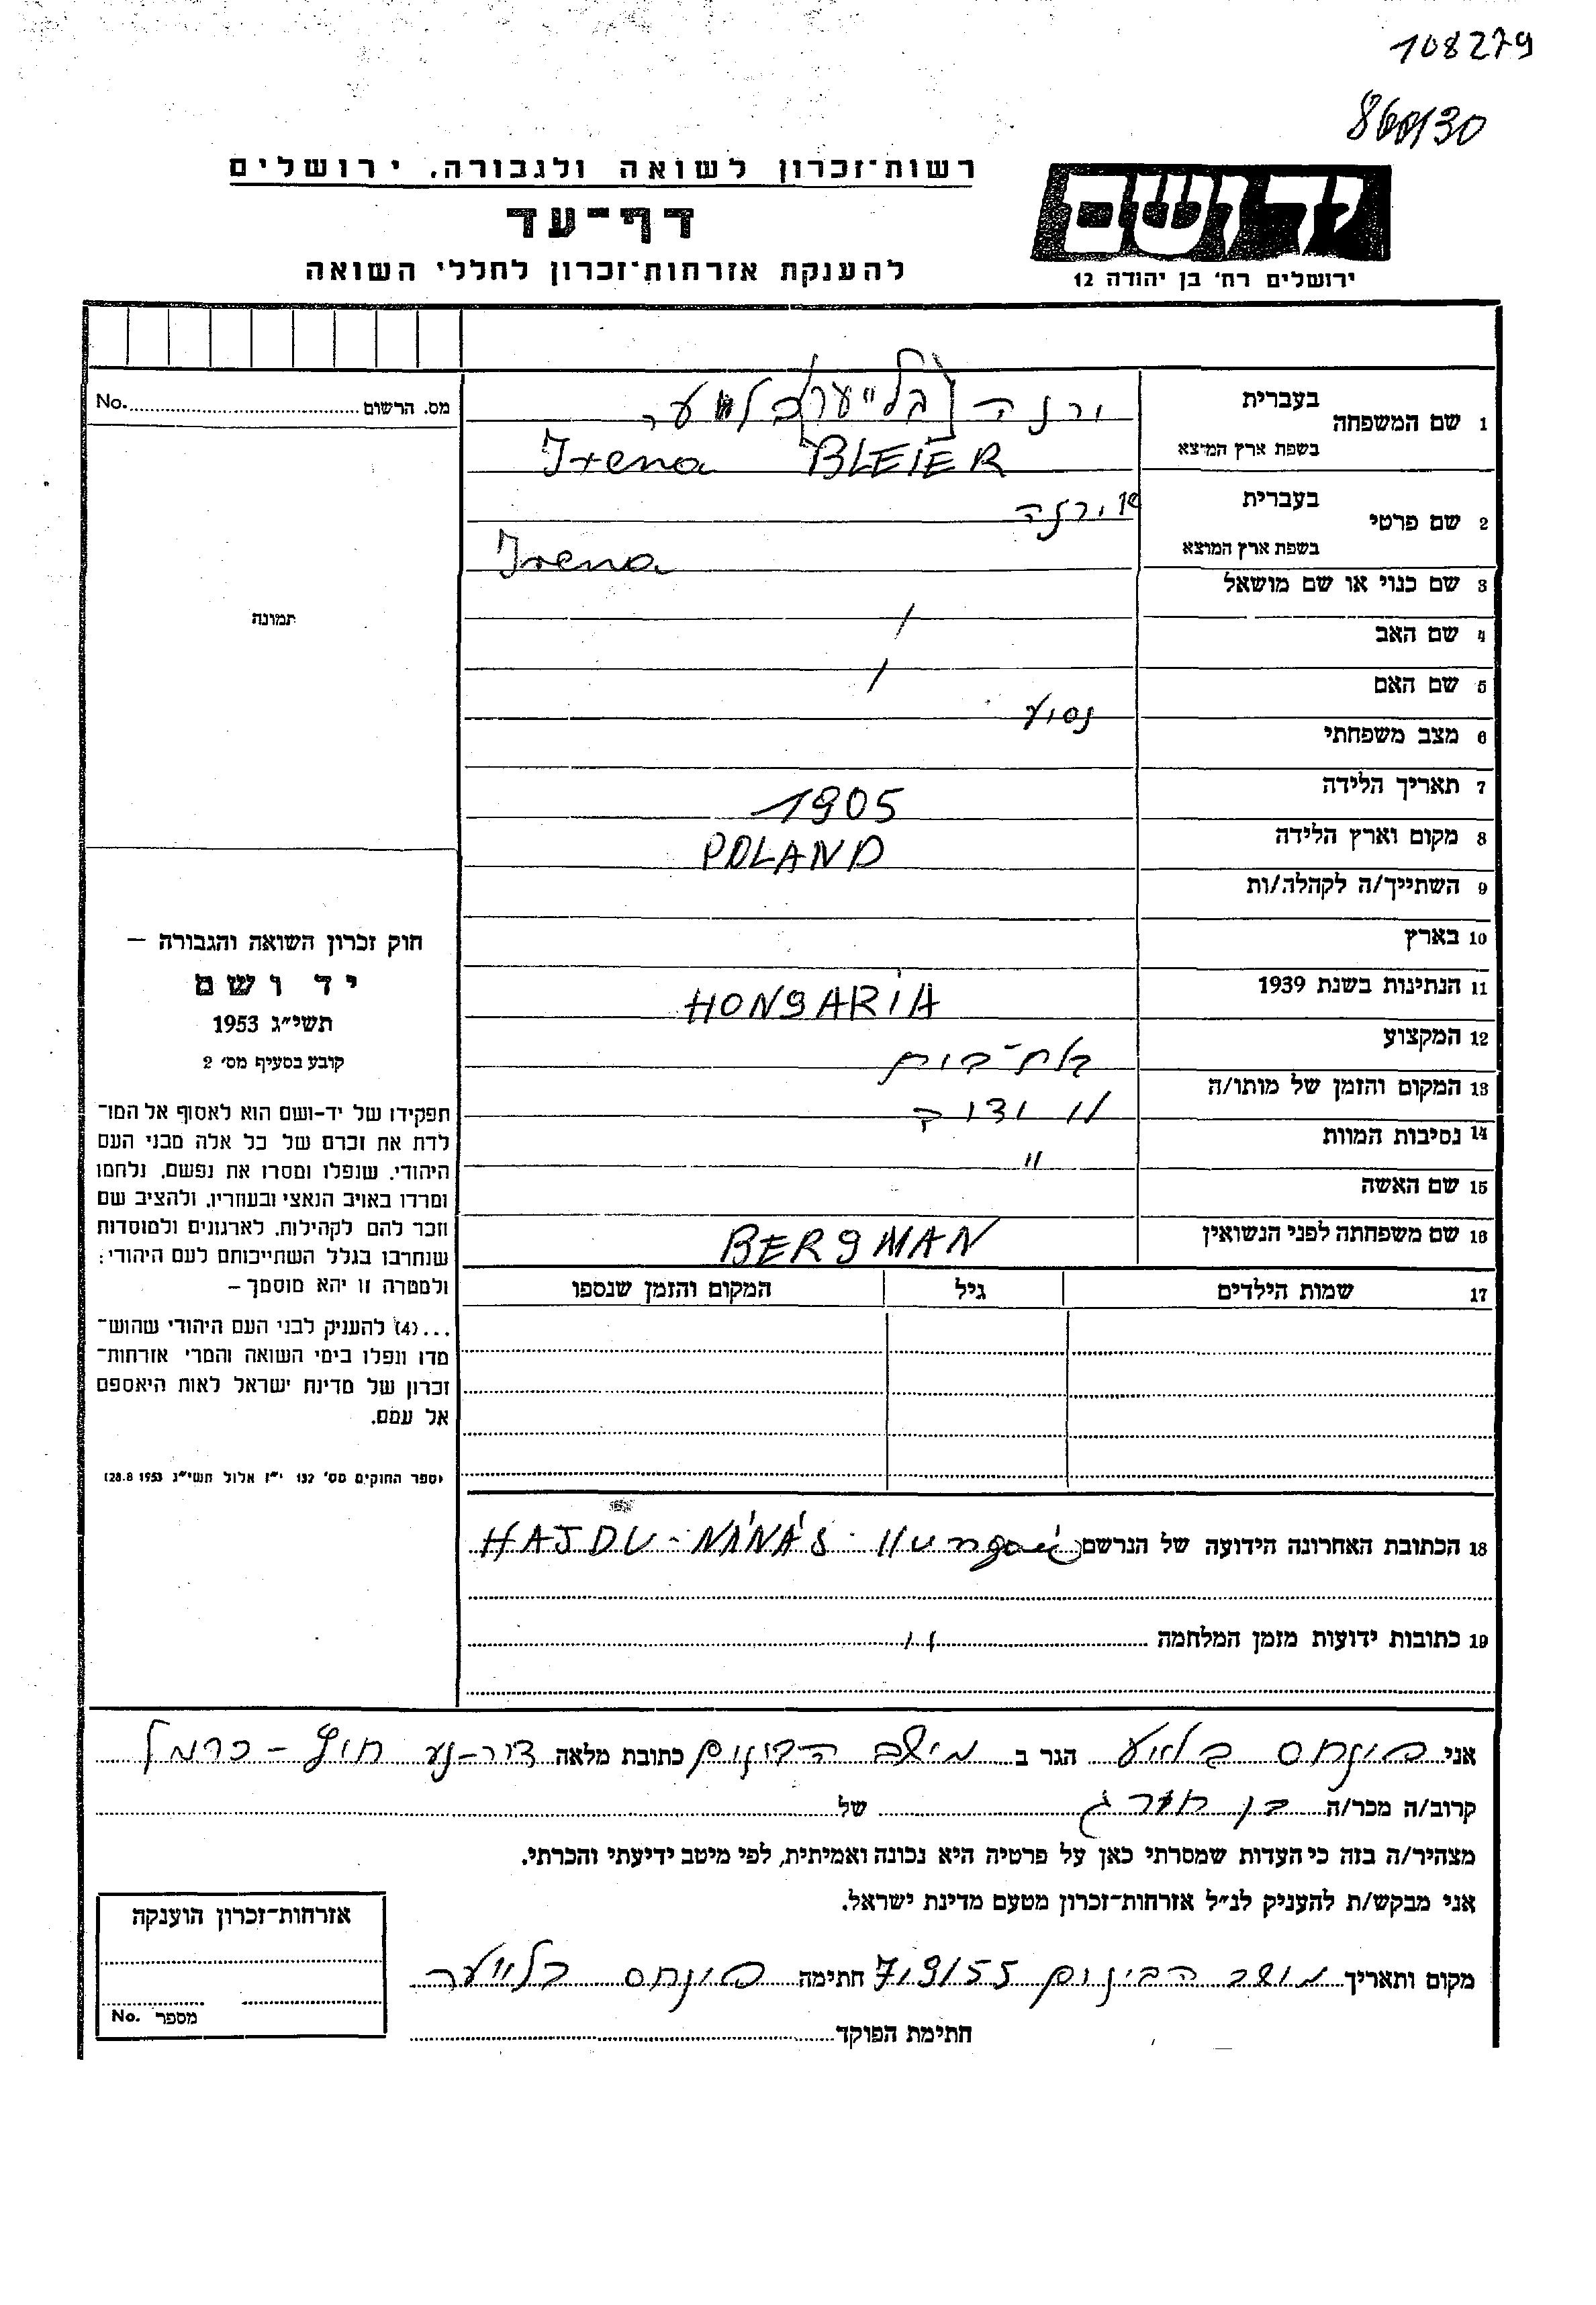 108279
רשות־זכרון לשואה ולגבורה, ירושלים
דף־עד
להענקת אזרחות־זכרון לחללי השואה
יד ושם
ירושלים רח' בן יהודה 12
מס. הרשום No.
1 שם המשפחה בעברית ירנה בלייער
בשפת ארץ המוצא Irena BLEIER
2 שם פרטי בעברית ירנה
בשפת ארץ המוצא Irena
3 שם כנוי או שם מושאל
4 שם האב /
5 שם האם /
6 מצב משפחתי נסוע
7 תאריך הלידה 1905
8 מקום וארץ הלידה POLAND
9 השתייך/ה לקהלה/ות
10 בארץ
11 הנתינות בשנת 1939 HONGARIA
12 המקצוע
13 המקום והזמן של מותו/ה
14 נסיבות המוות "
15 שם האשה
16 שם משפחתה לפני הנשואין BERGMAN
17 שמות הילדים גיל המקום והזמן שנספו
תמונה
חוק זכרון השואה והגבורה —
יד ושם
תשי״ג 1953
קובע בסעיף מס' 2
תפקידו של יד-ושם הוא לאסוף אל המו־
לדת את זכרם של כל אלה מבני העם
היהודי, שנפלו ומסרו את נפשם, נלחמו
ומרדו באויב הנאצי ובעוזריו, ולהציב שם
וזכר להם לקהילות, לארגונים ולמוסדות
שנחרבו בגלל השתייכותם לעם היהודי;
ולמטרה זו יהא מוסמך —
...(4) להענין לבני העם היהודי שהוש־
מדו ונפלו בימי השואה והמרי אזרחות־
זכרון של מדינת ישראל לאות היאספם
אל עמם.
(ספר החוקים מס' 132 י״ז אלול תשי״ג 28.8.1953)
18 הכתובת האחרונה הידועה של הנרשם HAJDU-NÁNÁS
19 כתובות ידועות מזמן המלחמה "
אני פינחס הגר ב כתובת מלאה דור-נע חוף-כרמל
קרוב/ה מכר/ה של
מצהיר/ה בזה כי העדות שמסרתי כאן על פרטיה היא נכונה ואמיתית, לפי מיטב ידיעתי והכרתי.
אני מבקש/ת להעניק לנ״ל אזרחות־זכרון מטעם מדינת ישראל.
מקום ותאריך מושב הבונים 7/9/55 חתימה פינחס בלייער
חתימת הפוקד
אזרחות־זכרון הוענקה
מספר No.